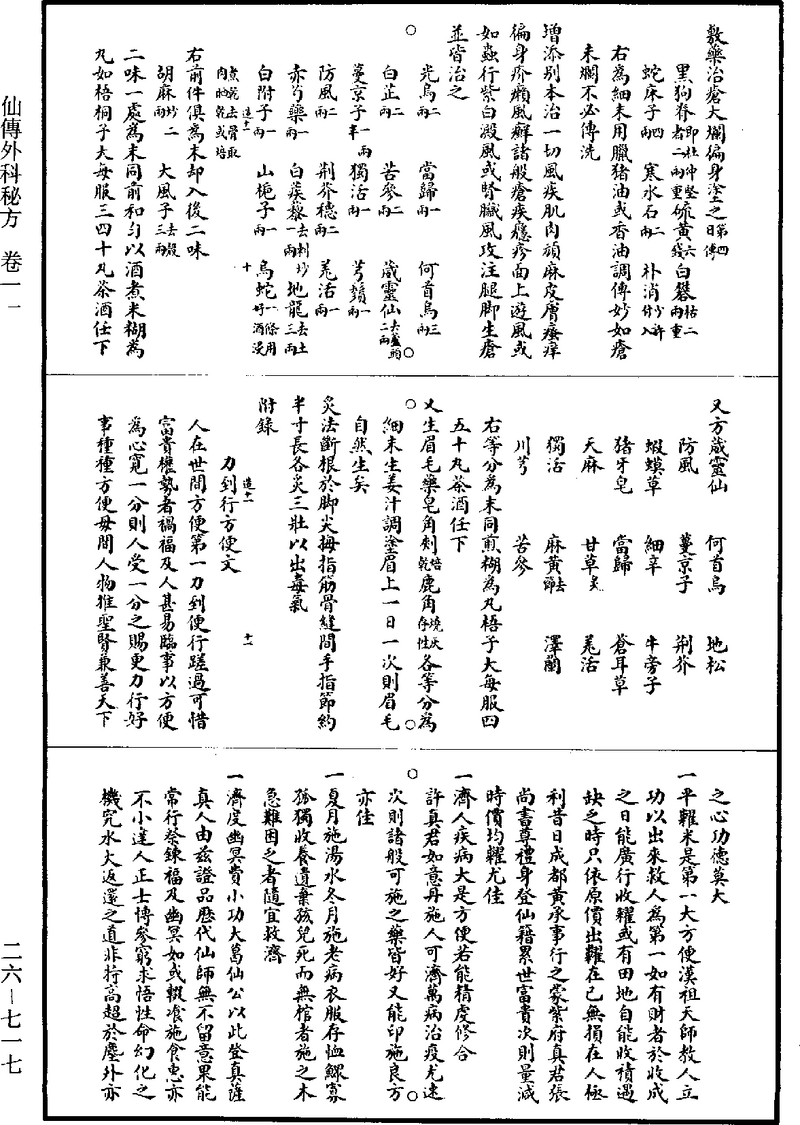 敷藥治瘡大爛徧身塗之第四日傳
黑狗脊即杜仲堅者二兩重硫黃六錢白礬枯二兩重
蛇床子四兩 寒水石二兩 朴消炒許付入
右為細末用臘猪油或香油調傅妙如瘡
未爛不必傳洗
增添別本治一切風疾肌肉頑麻皮膚瘙痒
徧身疥癩風癬諸般瘡疾癮疹面上遊風或
如蟲行紫白澱風或腎臟風攻注腿脚生瘡
並皆治之
光烏二兩 當歸一兩 何首烏三兩
白芷二兩 苦參二兩 葳靈仙去蘆二兩
蔓京子一兩半 獨活一兩 芎藭一兩
防風二兩 荆芥穗二兩 羌活一兩
赤芍藥一兩 白蒺藜去刺炒一兩 地龍去土三兩
白附子一兩 山梔子一兩 烏蛇一條用好酒浸
煮乾去骨取肉晒乾或焙
造十一 十
右前件俱為末却入後二味
胡麻炒二兩 大風子去殼三兩
二味一處為末同前和匀以酒煮米糊為
丸如梧桐子大每服三四十丸茶酒任下
又方葳靈仙 何首烏 地松
防風 蔓京子 荆芥
蝦蟆草 細辛 牛旁子
猪牙皂 當歸 蒼耳草
天麻 甘草炙 羌活
獨活 麻黃去節 澤蘭
川芎 苦參
右等分為末同煎糊為丸梧子大每服四
五十丸茶酒任下
又生眉毛藥皂角刺焙乾鹿角燒灰存性各等分為
細末生姜汁調塗眉上一日一次則眉毛
自然生矣
炙法斷根於脚尖拇指筋骨縫間手指節約
半寸長各炙三壯以出毒氣
附錄
力到行方便文
造十一 十一
人在世間方便第一力到便行蹉過可惜
富貴權勢者禍福及人甚易臨事以方便
為心寬一分則人受一分之賜更力行好
事種種方便毋間人物推聖賢兼善天下
之心功德莫大
一平糴米是第一大方便漢祖天師教人立
功以出來救人為第一如有財者於收成
之日能廣行收糴或有田地自能收積遇
缺之時只依原價出糶在己無損在人極
利昔日成都黃承事行之蒙紫府真君張
尚書尊禮身登仙籍累世富貴次則量減
時價均糶尤佳
一濟人疾病大是方便若能精虔修合
許真君如意丹施人可濟萬病治疫尤速
次則諸般可施之藥皆好又能印施良方
亦佳
一夏月施湯水冬月施老病衣服存恤鰥寡
孤獨收養遺棄孩兒死而無棺者施之木
急難困乏者隨宜救濟
一濟度幽冥費小功大葛仙公以此登真薩
真人由兹證品歷代仙師無不留意果能
常行祭鍊福及幽冥如或輟飡施食惠亦
不小達人正士博參窮求悟性命幻化之
機究水火返還之道非特高超於塵外亦
仙傳外科秘方 卷一一
二六—七一七